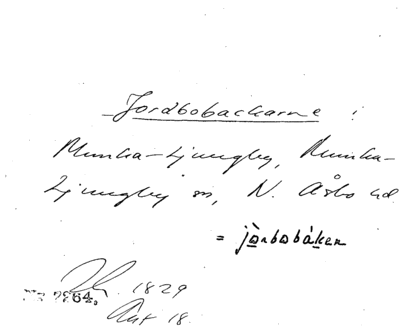 Jordbobackarne :
Munka-Ljungby, Munka-
Ljungby sn, N. Åsbo hd.
= jordbobaken
1829
Akt 18